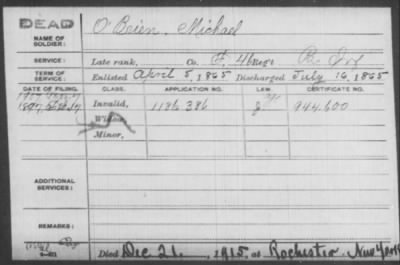 DEAD
NAME OF SOLDIER: O'Brien, Michael
SERVICE: Late rank, Co. F, 46 Reg't Inf
TERM OF SERVICE: Enlisted April 5, 1865 Discharged July 16, 1865
DATE OF FILING. CLASS. APPLICATION NO. LAW. CERTIFICATE NO.
1897 Invalid, 1186 386 944.600
Widow,
Minor,
ADDITIONAL SERVICES:
REMARKS:
Died Dec 21 1915, at Rochester, New York